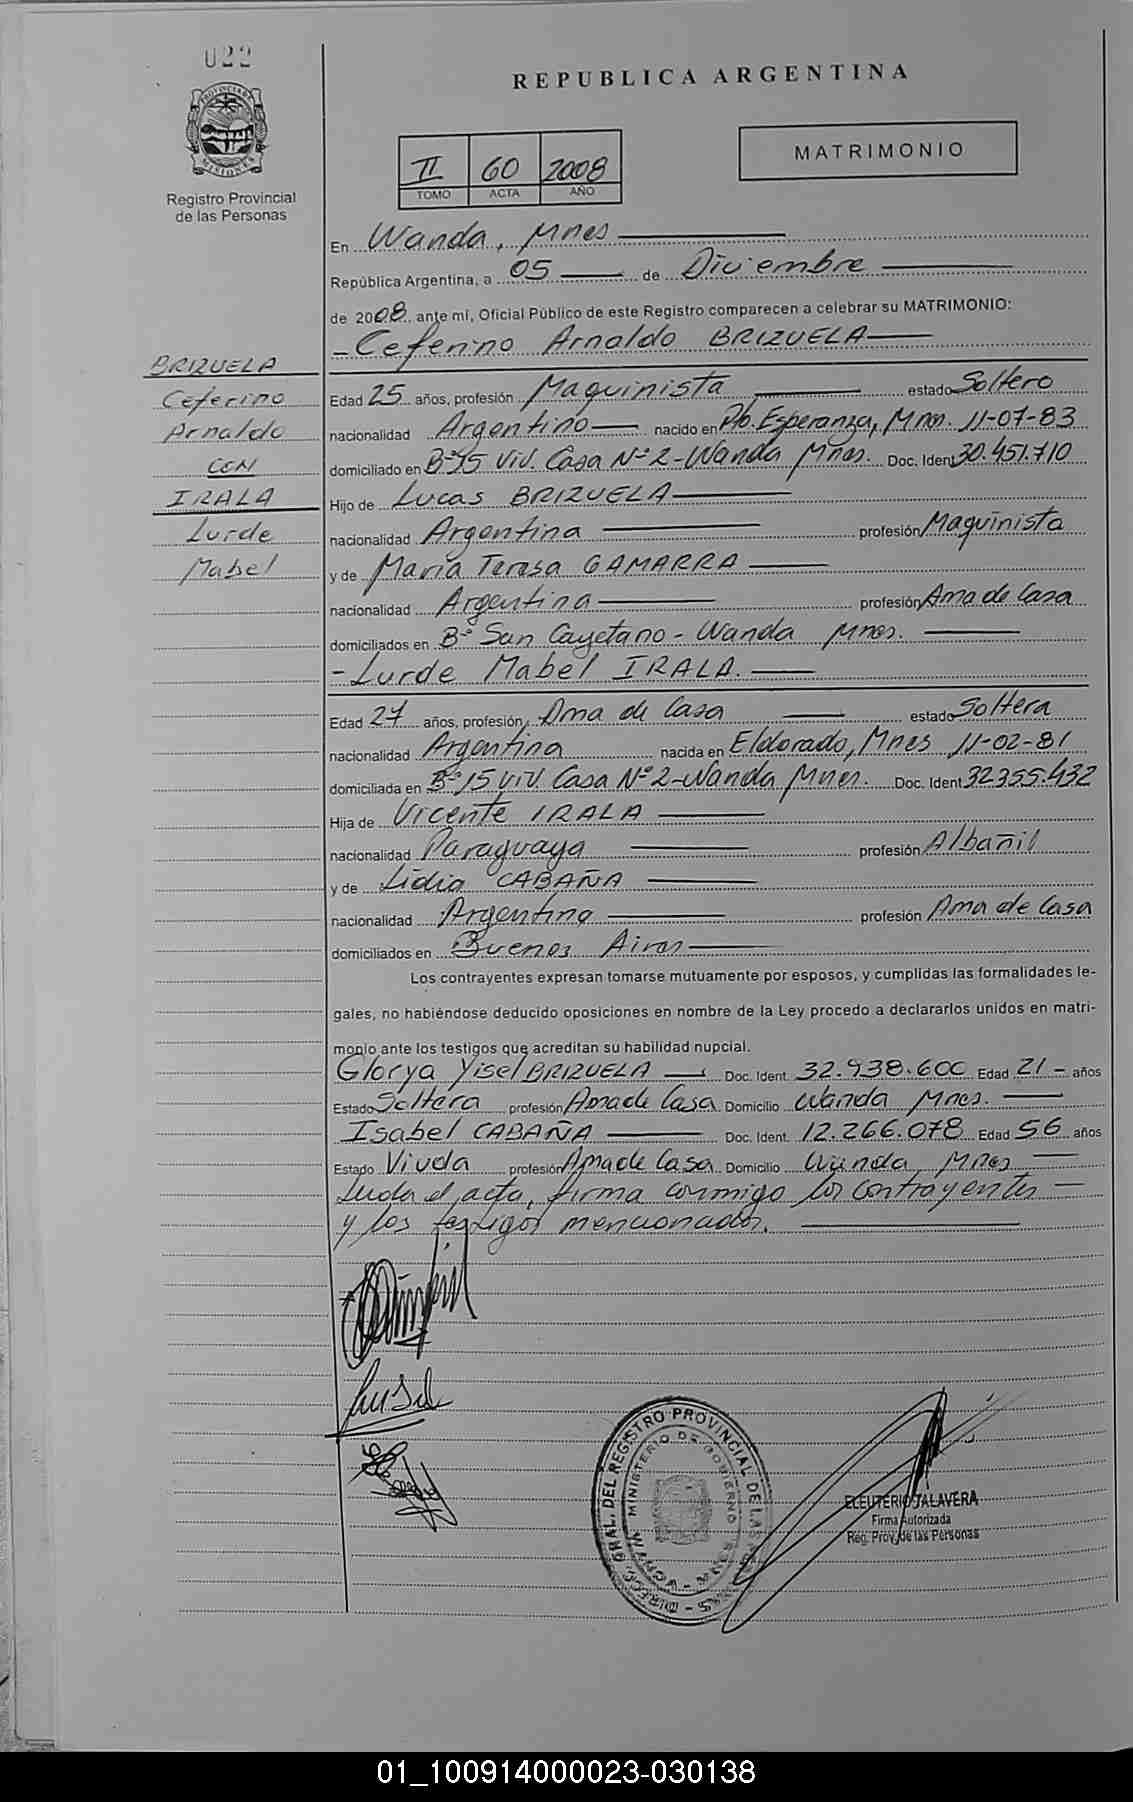 022
REPUBLICA ARGENTINA
PROVINCIA DE MISIONES
Registro Provincial
de las Personas
II 60 2008
TOMO ACTA AÑO
MATRIMONIO
En Wanda, Mnes
República Argentina, a 05 de Diciembre
de 2008 ante mí, Oficial Público de este Registro comparecen a celebrar su MATRIMONIO:
- Ceferino Arnaldo BRIZUELA
BRIZUELA
Ceferino
Arnaldo
CON
IRALA
Lurde
Mabel
Edad 25 años, profesión Maquinista estado Soltero
nacionalidad Argentino nacido en Pto. Esperanza, Mnes. 11-07-83
domiciliado en Bº 15 Viv. Casa Nº 2 - Wanda Mnes. Doc. Ident 30.451.710
Hijo de Lucas BRIZUELA
nacionalidad Argentina profesión Maquinista
y de María Teresa GAMARRA
nacionalidad Argentina profesión Ama de Casa
domiciliados en Bº San Cayetano - Wanda Mnes.
- Lurde Mabel IRALA.
Edad 27 años, profesión Ama de Casa estado Soltera
nacionalidad Argentina nacida en Eldorado, Mnes 11-02-81
domiciliada en Bº 15 Viv. Casa Nº 2 - Wanda Mnes. Doc. Ident 32355.432
Hija de Vicente IRALA
nacionalidad Paraguaya profesión Albañil
y de Lidia CABAÑA
nacionalidad Argentina profesión Ama de Casa
domiciliados en Buenos Aires
Los contrayentes expresan tomarse mutuamente por esposos, y cumplidas las formalidades le-
gales, no habiéndose deducido oposiciones en nombre de la Ley procedo a declararlos unidos en matri-
monio ante los testigos que acreditan su habilidad nupcial.
Glorya Yisel BRIZUELA Doc. Ident. 32.938.600 Edad 21 - años
Estado Soltera profesión Ama de Casa Domicilio Wanda Mnes.
Isabel CABAÑA Doc. Ident. 12.266.078 Edad 56 años
Estado Viuda profesión Ama de Casa Domicilio Wanda, Mnes
Leida el acta, firma conmigo los contrayentes
y los testigos mencionados.
DIREC. GRAL. DEL REGISTRO PROVINCIAL DE LAS PERSONAS
MINISTERIO DE GOBIERNO
ELEUTERIO TALAVERA
Firma Autorizada
Reg. Prov. de las Personas
01_100914000023-030138